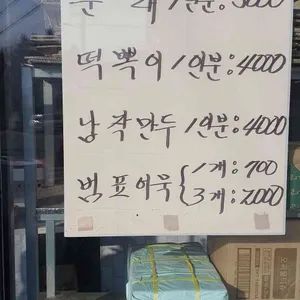 순대 / 인분: 3000
떡뽁이 / 인분: 4000
납작만두 / 인분: 4000
범표어묵 { 1개: 700
3개: 2,000